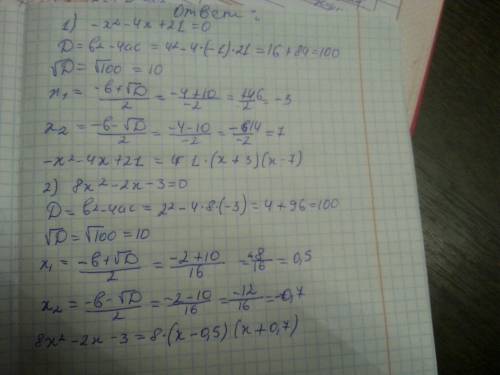 Ответ:
1) -x²-4x+21=0
D=b²-4ac=4²-4·(-1)·21=16+84=100
√D=√100=10
x₁=(-b+√D)/2=(-4+10)/-2=6/2=-3
x₂=(-b-√D)/2=(-4-10)/-2=-14/-2=7
-x²-4x+21=1·(x+3)(x-7)
2) 8x²-2x-3=0
D=b²-4ac=2²-4·8·(-3)=4+96=100
√D=√100=10
x₁=(-b+√D)/2=(-2+10)/16=8/16=0,5
x₂=(-b-√D)/2=(-2-10)/16=-12/16=-0,7
8x²-2x-3=8·(x-0,5)(x+0,7)